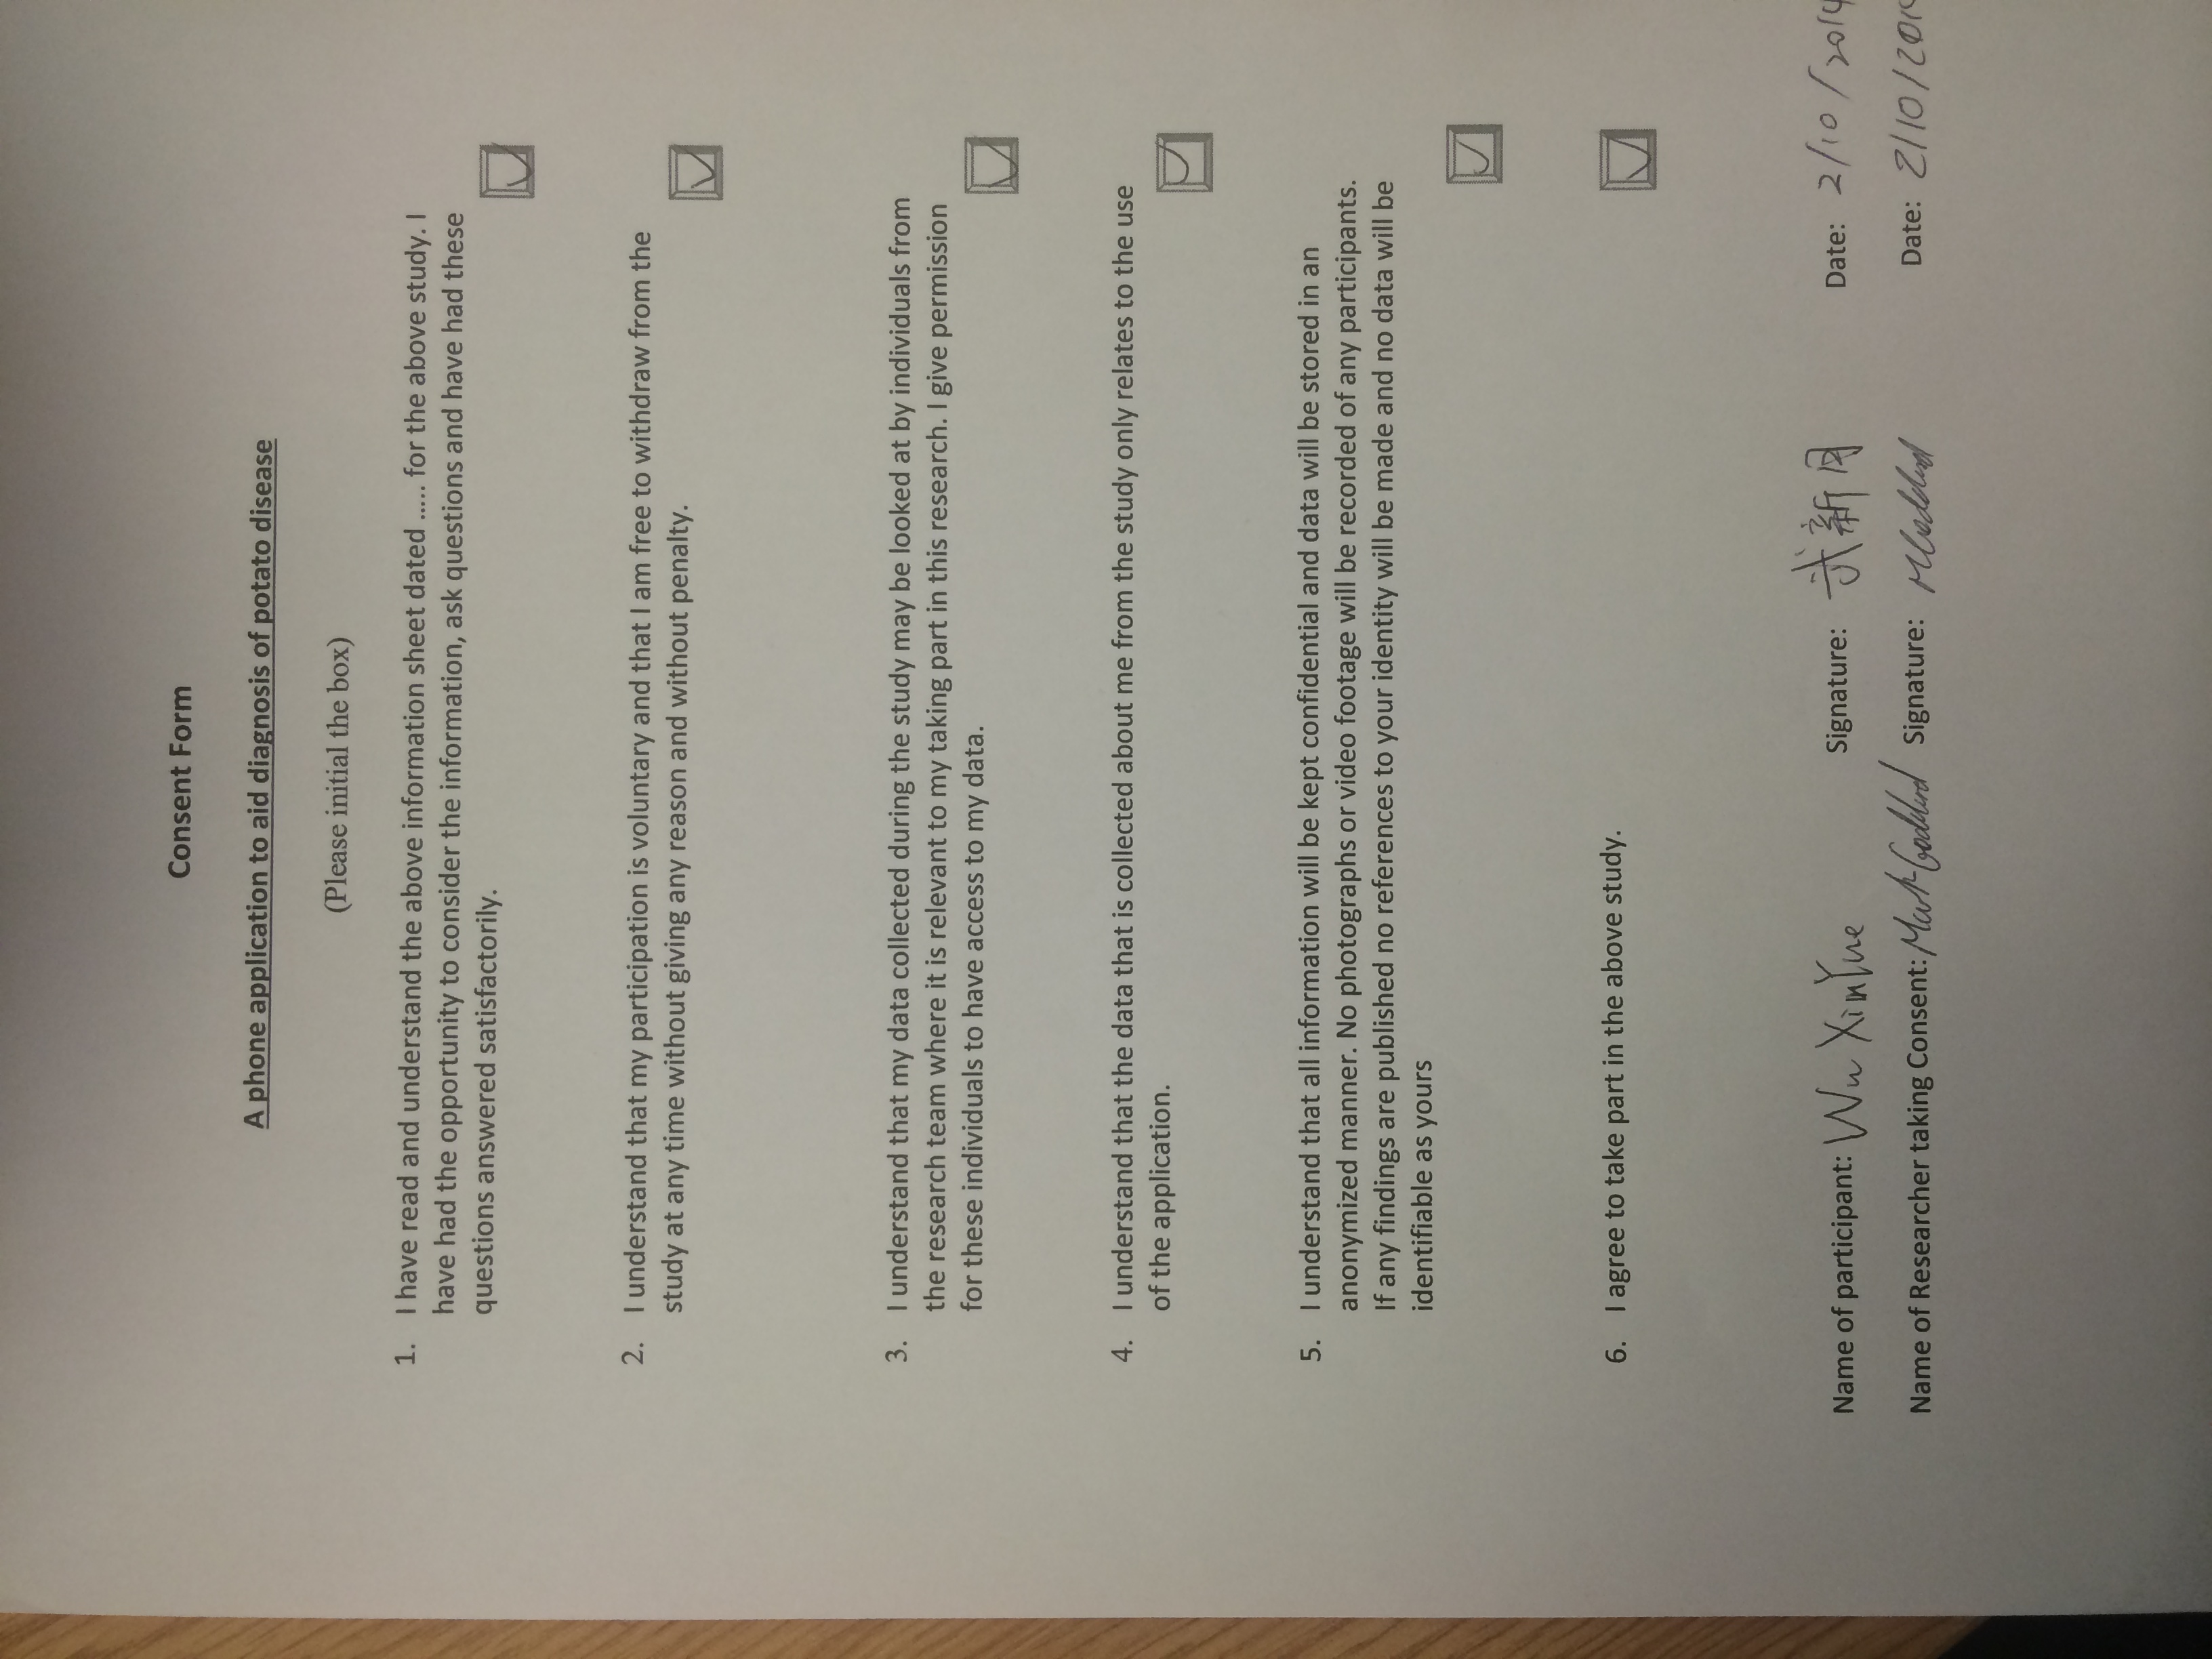 Consent Form
A phone application to aid diagnosis of potato disease
(Please initial the box)
1. I have read and understand the above information sheet dated ..... for the above study. I
have had the opportunity to consider the information, ask questions and have had these
questions answered satisfactorily.
2. I understand that my participation is voluntary and that I am free to withdraw from the
study at any time without giving any reason and without penalty.
3. I understand that my data collected during the study may be looked at by individuals from
the research team where it is relevant to my taking part in this research. I give permission
for these individuals to have access to my data.
4. I understand that the data that is collected about me from the study only relates to the use
of the application.
5. I understand that all information will be kept confidential and data will be stored in an
anonymized manner. No photographs or video footage will be recorded of any participants.
If any findings are published no references to your identity will be made and no data will be
identifiable as yours
6. I agree to take part in the above study.
Name of participant: Wu XinYue Signature: 武新月 Date: 2/10/2014
Name of Researcher taking Consent: Mark Goddard Signature: Date: 2/10/201